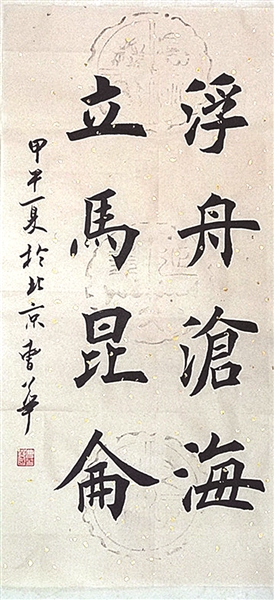 浮舟滄海
立馬昆侖
甲午夏於北京曹華